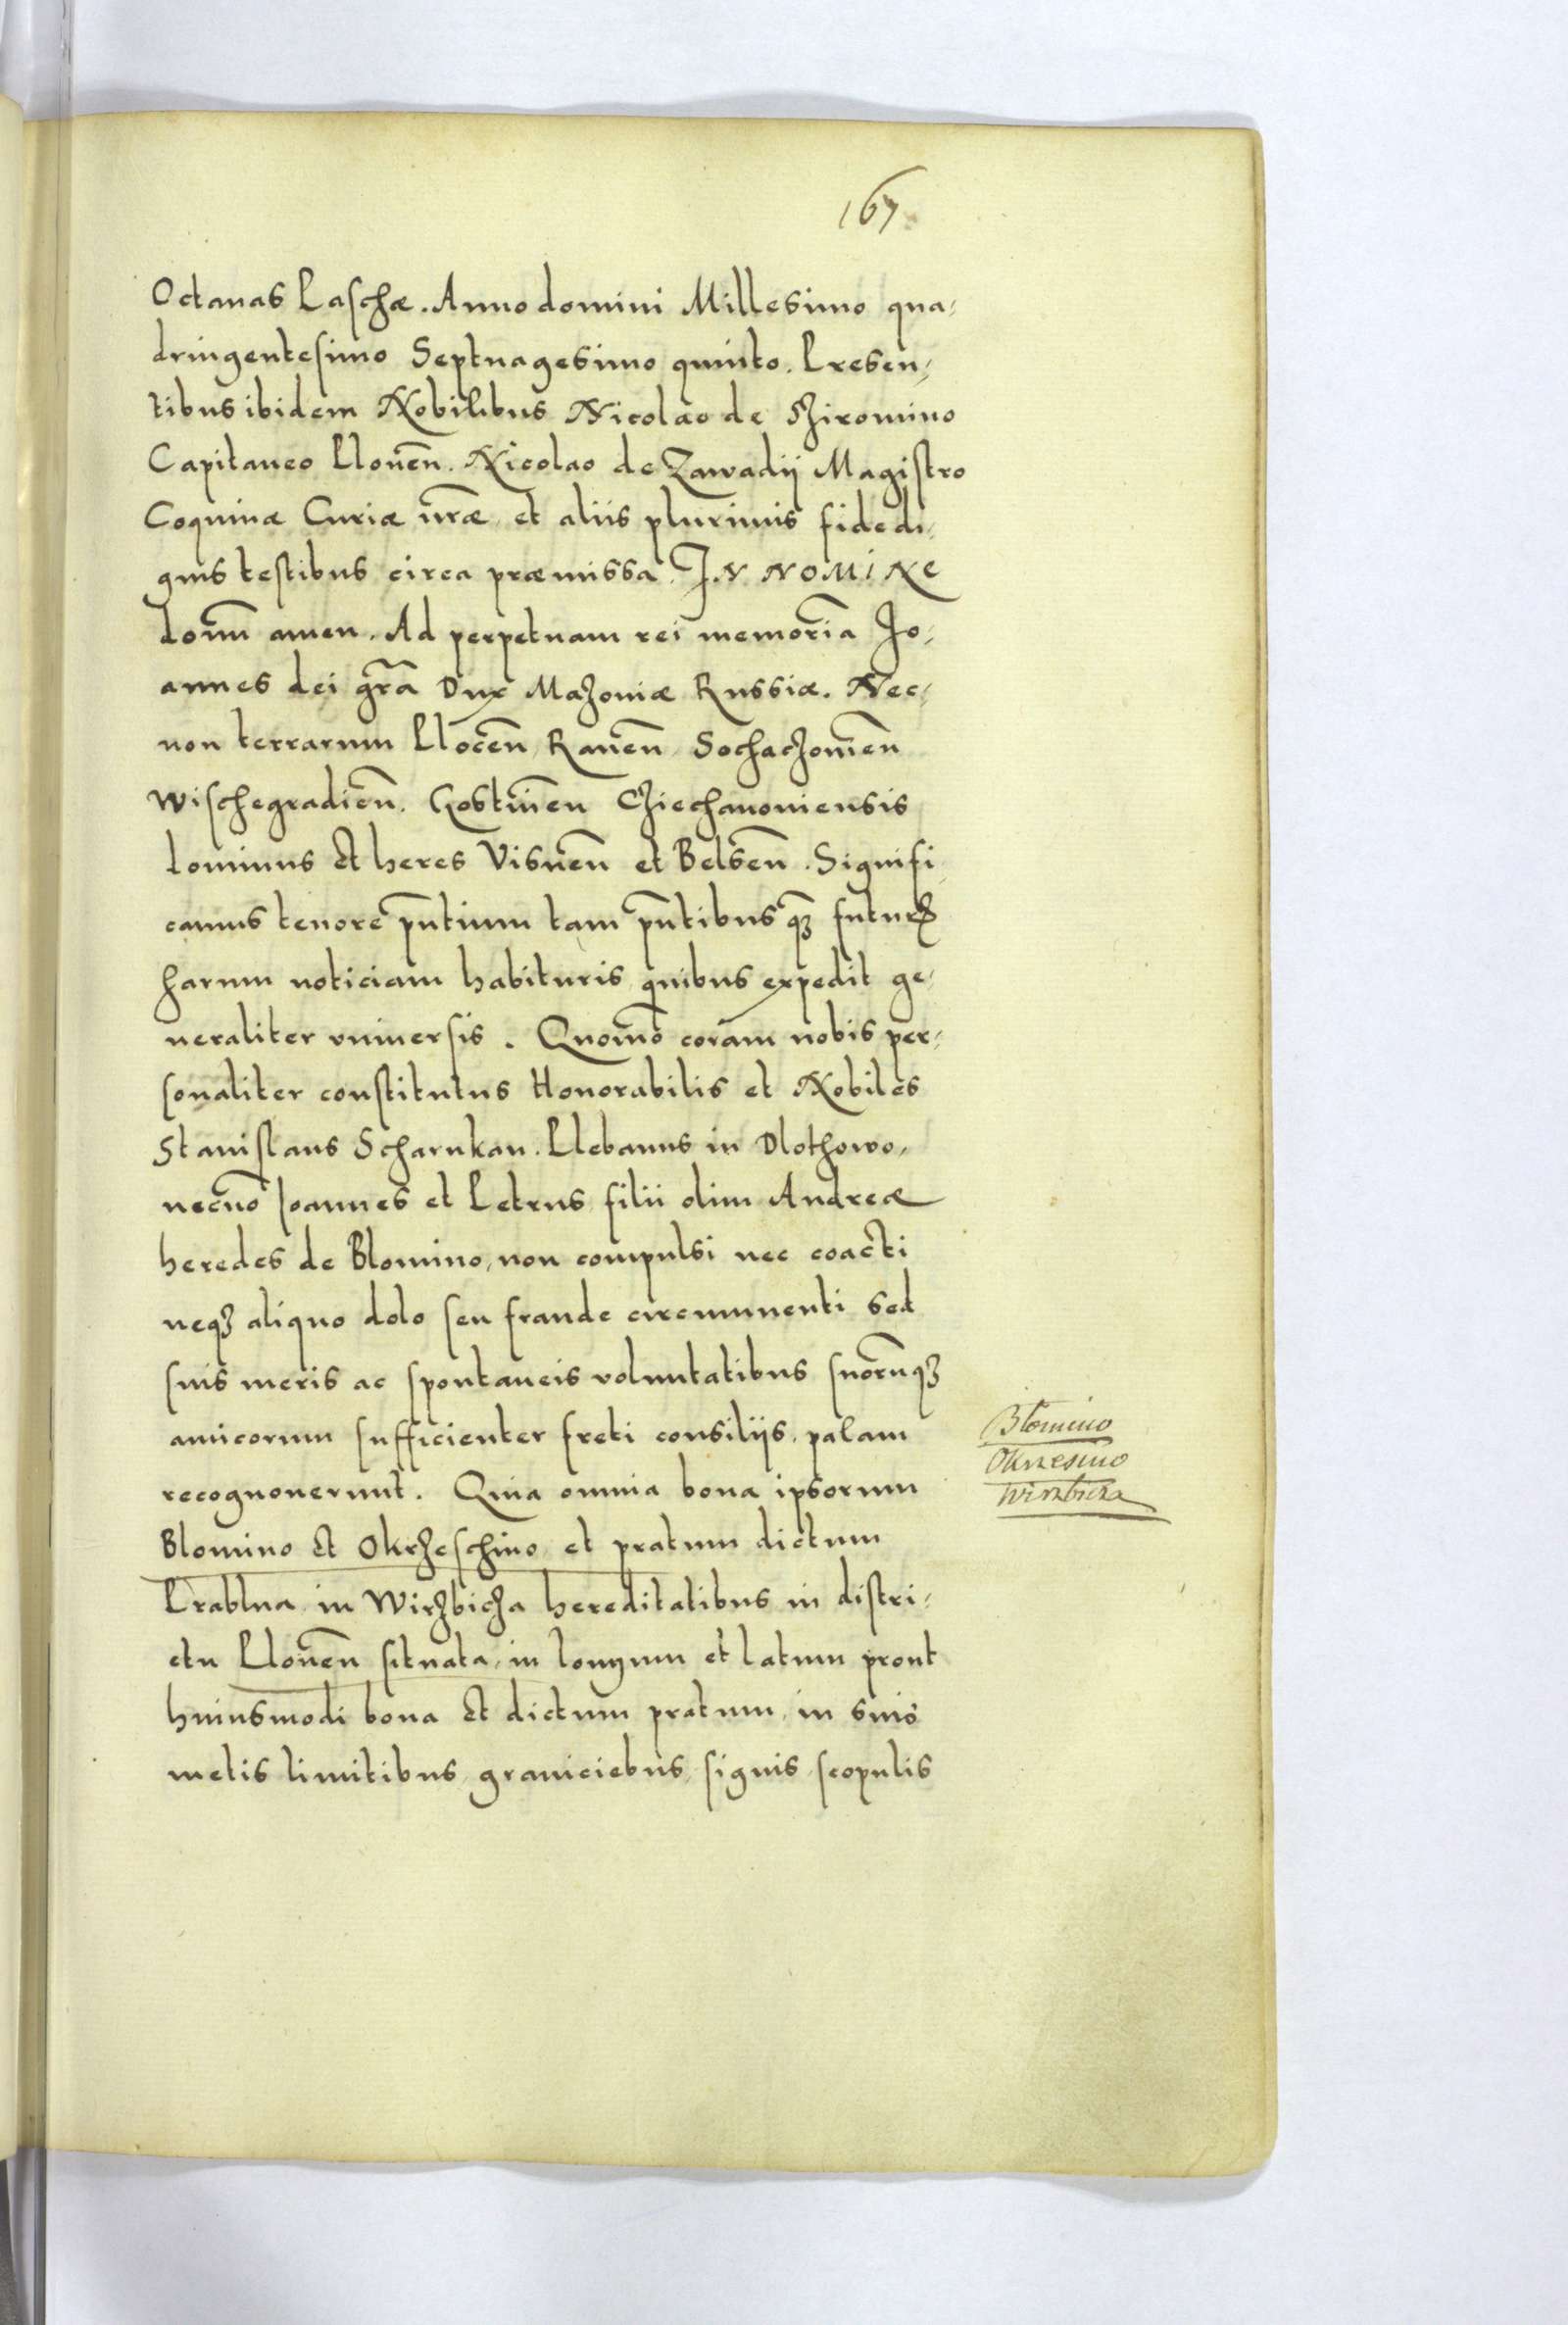 167
Octauas Paschæ. Anno domini Millesimo qua-
dringentesimo Septuagesimo quinto. Presen-
tibus ibidem Nobilibus Nicolao de Sziromino
Capitaneo Plonen̄. Nicolao de Zawadÿ Magistro
Coquinæ Curiæ nr̄æ et aliis plurimis fidedi-
gnis testibus circa præmissa. IN NOMINE
domi̅n̅i amen. Ad perpetuam rei memoria̅ Jo-
annes dei gr̄a Dux Mazoniæ Russiæ. Nec-
non terrarum Plocen̄, Rauen̄, Sochaczouien̄
Wischegradien̄. Gostinen̄ Cziechanouiensis
Dominus et heres Visnen̄ et Belsen̄. Signifi-
camus tenore pn̄tium tam pn̄tibus qz̄ futuris
harum noticiam habituris, quibus expedit ge-
neraliter vniuersis. Quomo̅ coram nobis per-
sonaliter constitutus Honorabilis et Nobiles
Stanislaus Scharnkan. Plebanus in Dlothowo,
necno̅ Joannes et Petrus filii olim Andreæ
heredes de Blomino, non compulsi nec coacti
neqz aliquo dolo seu fraude circumuenti sed
suis meris ac spontaneis voluntatibus suoru̅qz
amicorum sufficienter freti consiliis, palam
recognouerunt. Quia omnia bona ipsorum
Blomino et Okrzeschino et pratum dictum
Prablna in Wirzbicza hereditatibus in distri-
ctu Plonen̄ situata, in longum et latum prout
huiusmodi bona et dictum pratum, in suis
metis limitibus, graniciebus, signis, scopulis
Blomino
Okrzesino
Wirzbicza